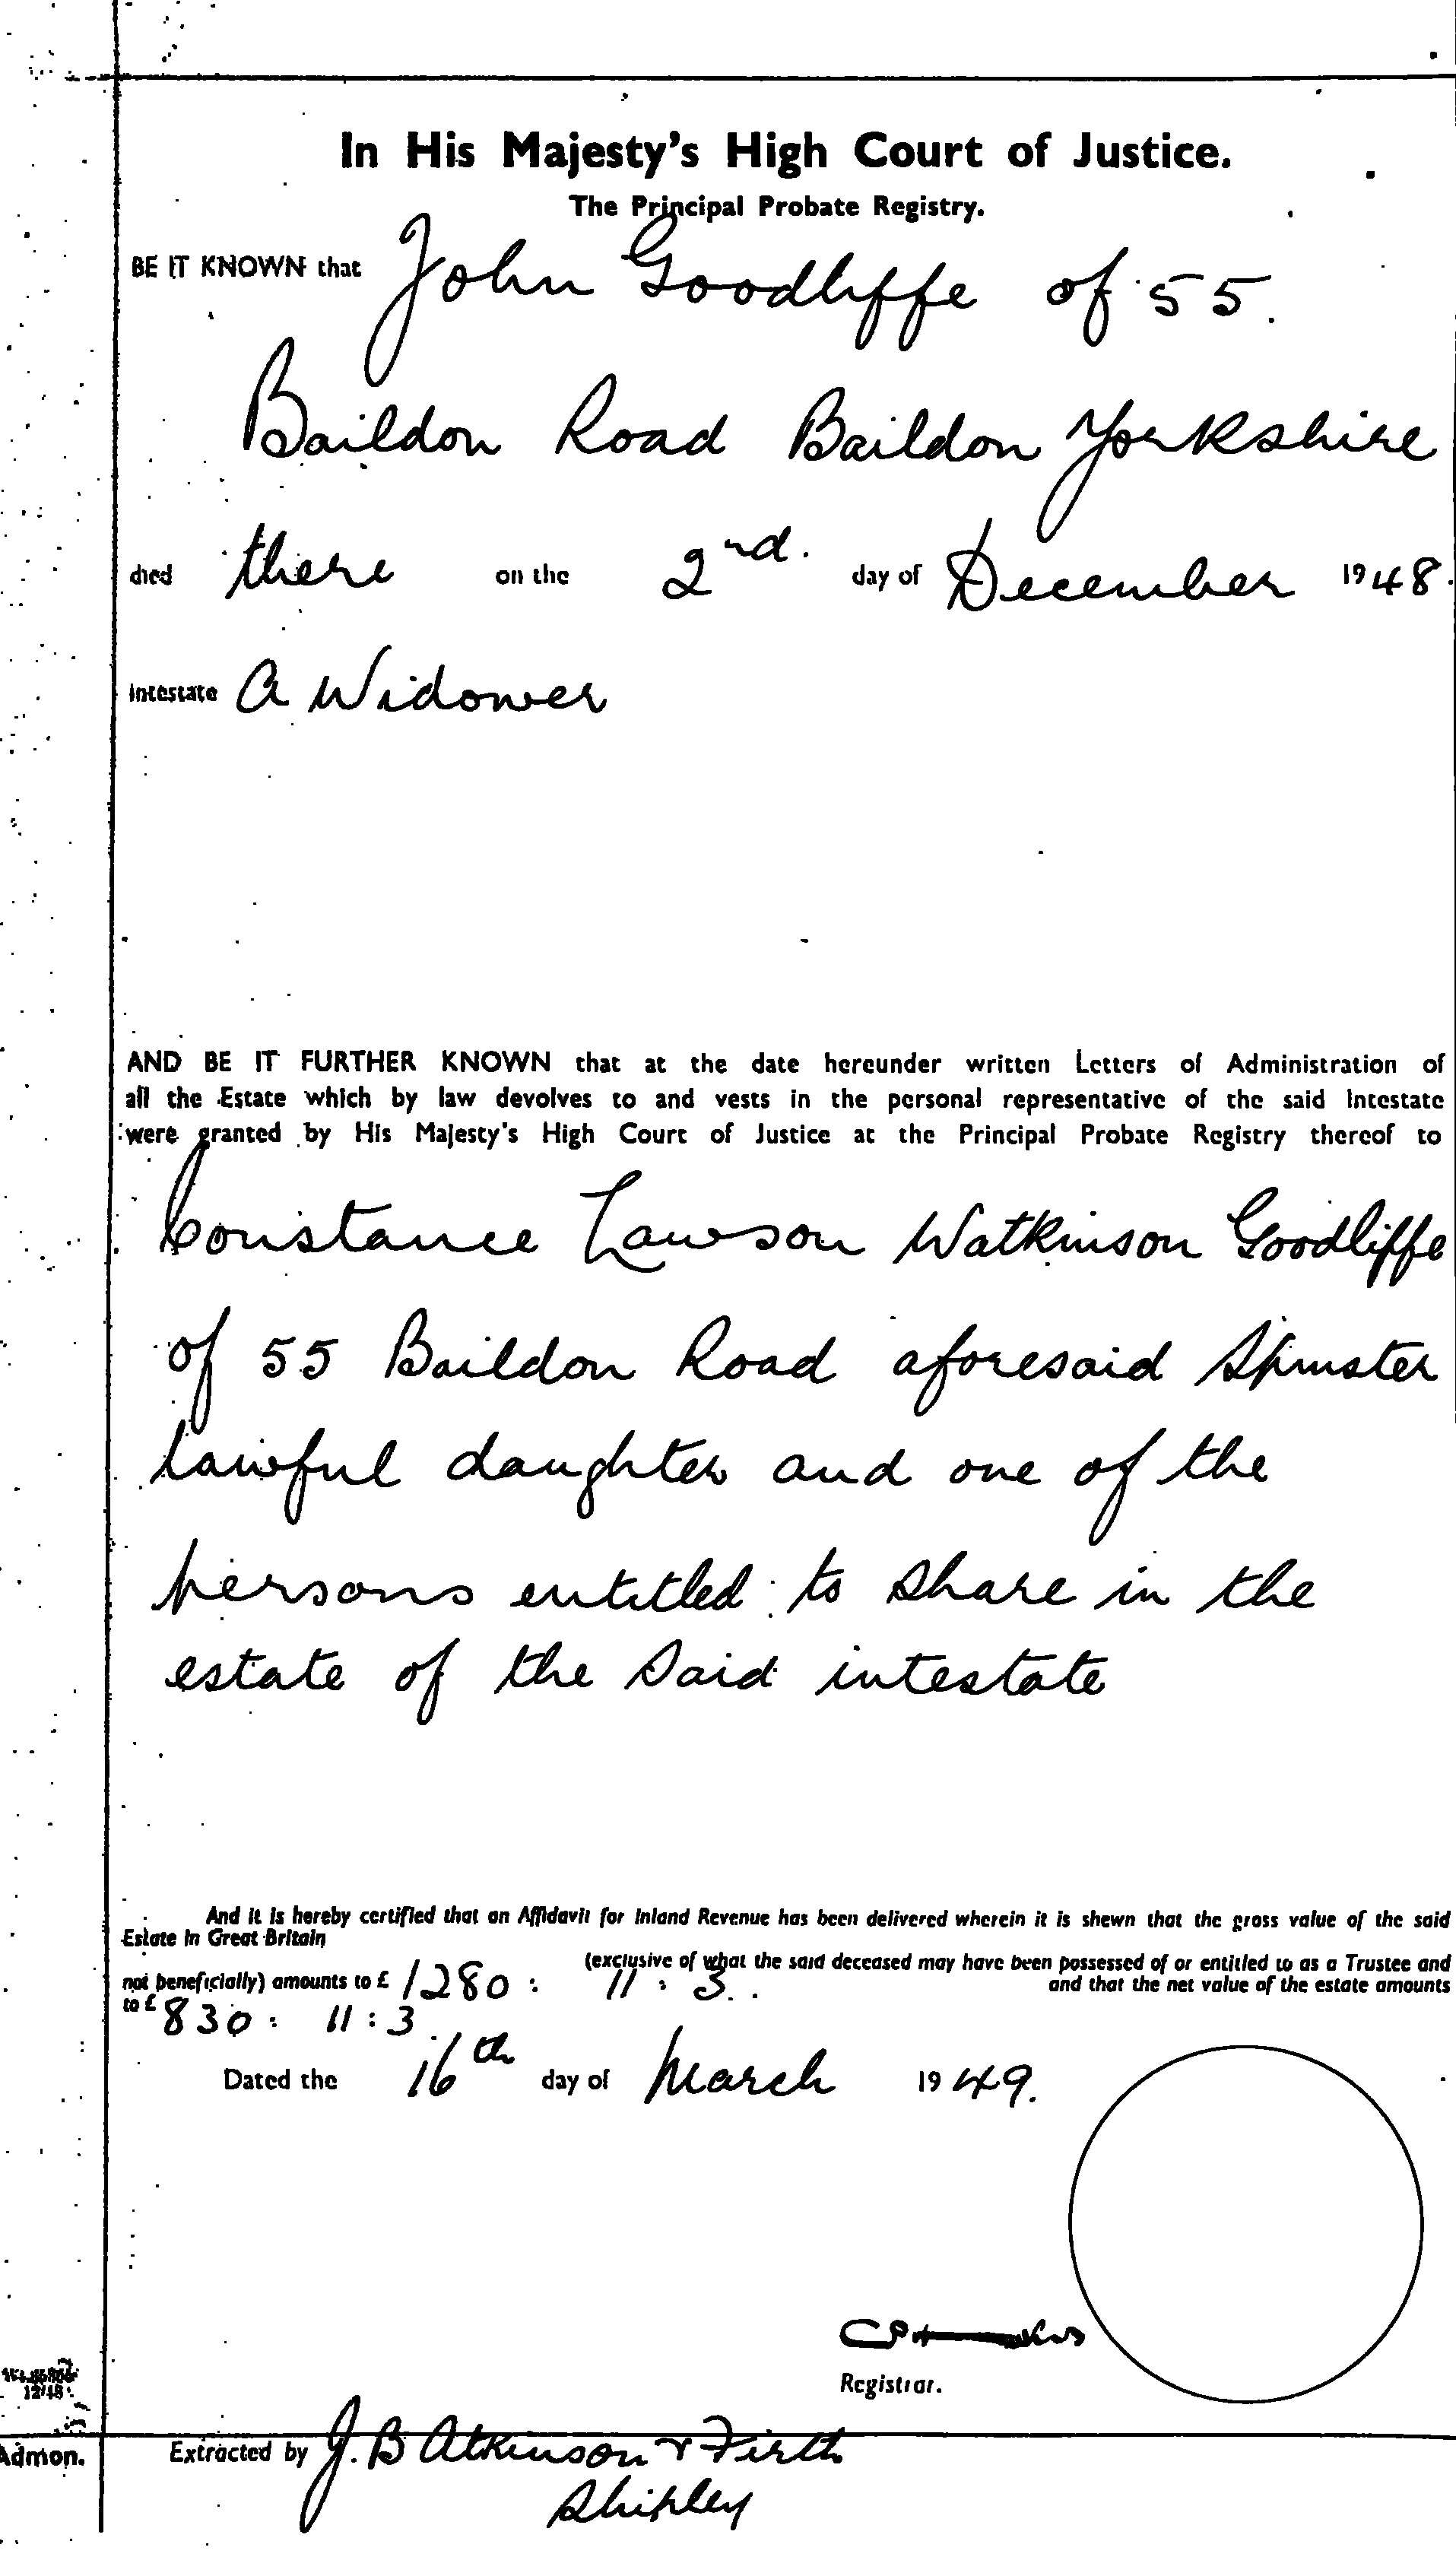 In His Majesty's High Court of Justice.
The Principal Probate Registry.
BE IT KNOWN that John Goodliffe of 55.
Baildon Road Baildon Yorkshire
died there on the 2nd. day of December 1948.
Intestate A Widower
AND BE IT FURTHER KNOWN that at the date hereunder written Letters of Administration of
all the Estate which by law devolves to and vests in the personal representative of the said Intestate
were granted by His Majesty's High Court of Justice at the Principal Probate Registry thereof to
Constance Lawson Watkinson Goodliffe
of 55 Baildon Road aforesaid Spinster
lawful daughter and one of the
persons entitled to share in the
estate of the said intestate
And it is hereby certified that an Affidavit for Inland Revenue has been delivered wherein it is shewn that the gross value of the said
Estate in Great Britain
(exclusive of what the said deceased may have been possessed of or entitled to as a Trustee and
not beneficially) amounts to £ 1280 : 11 : 3. and that the net value of the estate amounts
to £ 830 : 11 : 3
Dated the 16th day of March 1949.
Registrar.
12/48
Admon. Extracted by J. B Atkinson & Firth
Shipley